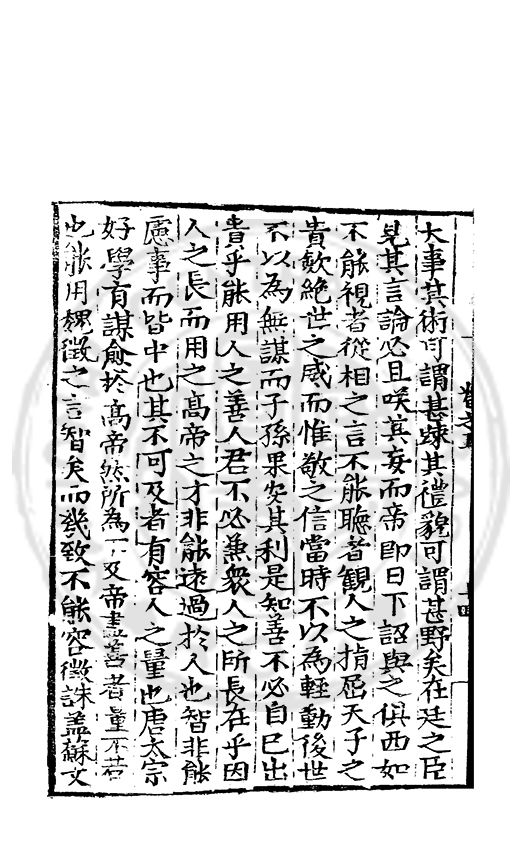 大事其術可謂甚疎其禮貌可謂甚野矣在廷之臣
見其言論必且咲其妄而帝即日下詔與之俱西如
不能視者從相之言不能聽者觀人之指屈天子之
貴歛絶世之威而惟敬之信當時不以為輕動後世
不以為無謀而子孫果安其利是知善不必自已出
貴乎能用人之善人君不必兼衆人之所長在乎因
人之長而用之髙帝之才非能逺過於人也智非能
慮事而皆中也其不可及者有容人之量也唐太宗
好學有謀愈於髙帝然所為不及帝盡善者量不若
也能用魏徵之言智矣而幾致不能容徵誅盖蘇文
卷之五
十四